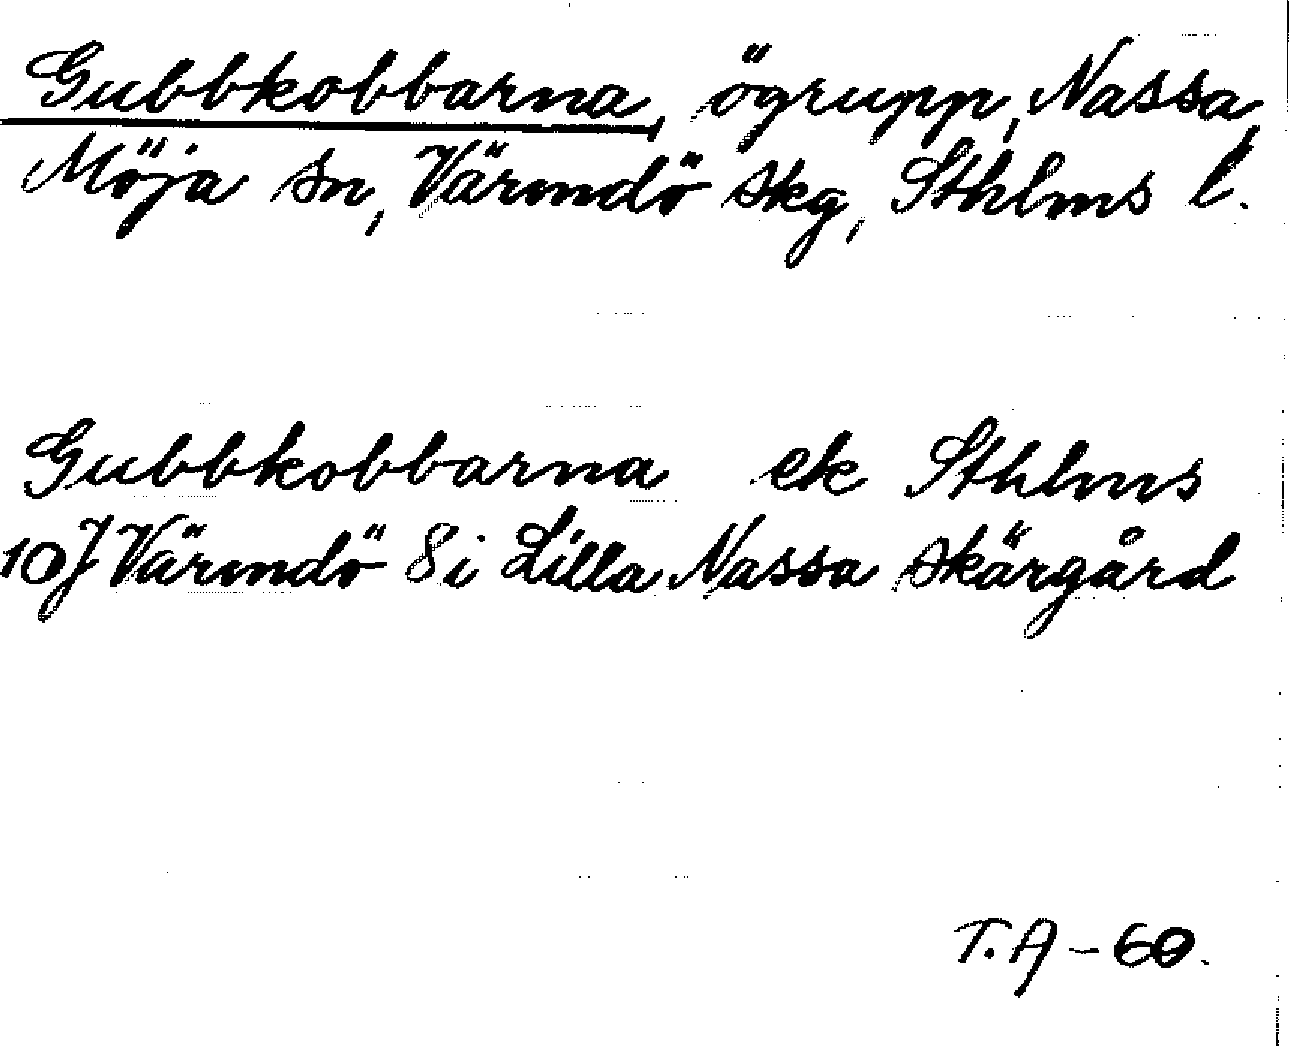 Gubbkobbarna, ögrupp, Nassa,
Möja sn, Värmdö skg, Sthlms l.
Gubbkobbarna ek Sthlms
10J Värmdö 8i Lilla Nassa skärgård
T.A -60.